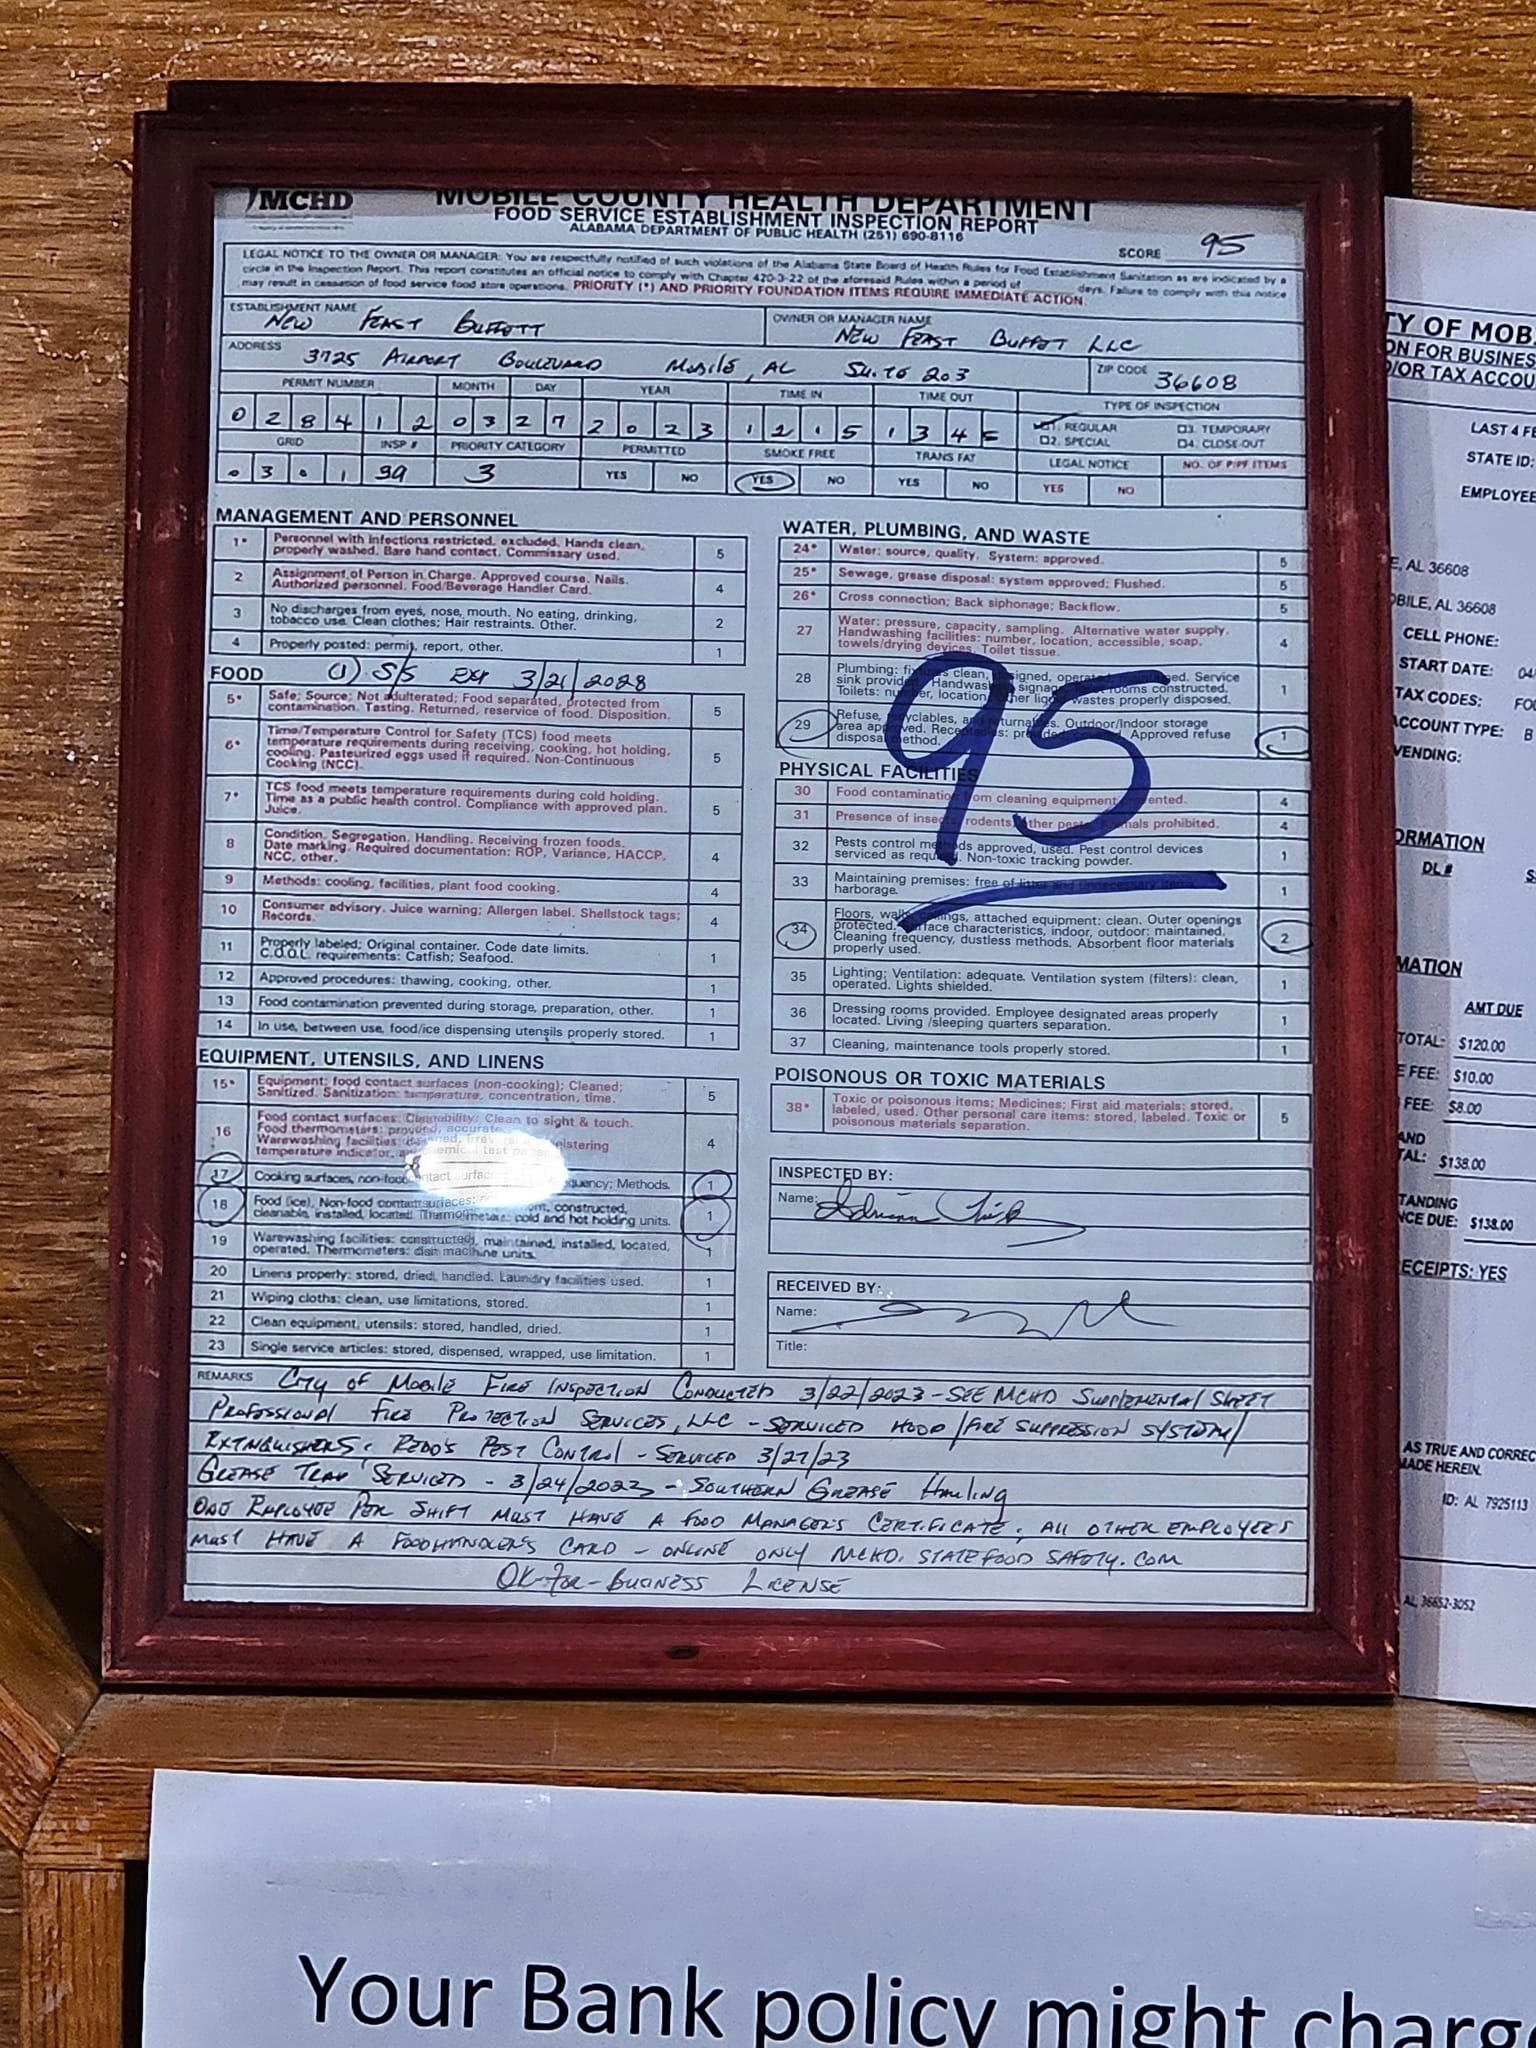 MCHD
MOBILE COUNTY HEALTH DEPARTMENT
FOOD SERVICE ESTABLISHMENT INSPECTION REPORT
ALABAMA DEPARTMENT OF PUBLIC HEALTH (251) 690-8116
SCORE 95
LEGAL NOTICE TO THE OWNER OR MANAGER: You are respectfully notified of such violations of the Alabama State Board of Health Rules for Food Establishment Sanitation as are indicated by a
circle in the Inspection Report. This report constitutes an official notice to comply with Chapter 420-3-22 of the aforesaid Rules within a period of days. Failure to comply with this notice
may result in cessation of food service food store operations. PRIORITY (*) AND PRIORITY FOUNDATION ITEMS REQUIRE IMMEDIATE ACTION.
ESTABLISHMENT NAME
NEW FEAST BUFFETT
OWNER OR MANAGER NAME
NEW FEAST BUFFET LLC
ADDRESS 3725 AIRPORT BOULEVARD MOBILE, AL SUITE 203
ZIP CODE 36608
PERMIT NUMBER MONTH DAY YEAR TIME IN TIME OUT TYPE OF INSPECTION
0 2 8 4 1 2 0 3 2 7 2 0 2 3 1 2 1 5 1 3 4 5
1. REGULAR 3. TEMPORARY
2. SPECIAL 4. CLOSE-OUT
GRID INSP # PRIORITY CATEGORY PERMITTED SMOKE FREE TRANS FAT LEGAL NOTICE NO. OF P/PF ITEMS
0 3 0 1 99 3 YES NO YES NO YES NO YES NO
MANAGEMENT AND PERSONNEL
1* Personnel with infections restricted, excluded. Hands clean,
properly washed. Bare hand contact. Commissary used. 5
2 Assignment of Person in Charge. Approved course. Nails.
Authorized personnel. Food/Beverage Handler Card. 4
3 No discharges from eyes, nose, mouth. No eating, drinking,
tobacco use. Clean clothes; Hair restraints. Other. 2
4 Properly posted: permit, report, other. 1
FOOD (1) S/S EXP 3/21/2028
5* Safe; Source; Not adulterated; Food separated, protected from
contamination. Tasting. Returned, reservice of food. Disposition. 5
6* Time/Temperature Control for Safety (TCS) food meets
temperature requirements during receiving, cooking, hot holding,
cooling. Pasteurized eggs used if required. Non-Continuous
Cooking (NCC). 5
7* TCS food meets temperature requirements during cold holding.
Time as a public health control. Compliance with approved plan.
Juice. 5
8 Condition. Segregation. Handling. Receiving frozen foods.
Date marking. Required documentation: ROP, Variance, HACCP,
NCC, other. 4
9 Methods: cooling, facilities, plant food cooking. 4
10 Consumer advisory. Juice warning; Allergen label. Shellstock tags;
Records. 4
11 Properly labeled; Original container. Code date limits.
C.O.O.L. requirements: Catfish; Seafood. 1
12 Approved procedures: thawing, cooking, other. 1
13 Food contamination prevented during storage, preparation, other. 1
14 In use, between use, food/ice dispensing utensils properly stored. 1
EQUIPMENT, UTENSILS, AND LINENS
15* Equipment; food contact surfaces (non-cooking); Cleaned;
Sanitized. Sanitization: temperature, concentration, time. 5
16 Food contact surfaces: Cleanability; Clean to sight & touch.
Food thermometers: provided, accurate
Warewashing facilities:
temperature indicator, chemical test paper 4
17 Cooking surfaces, non-food contact surfaces Methods. 1
18 Food (ice), Non-food contact surfaces: constructed,
cleanable, installed, located. Thermometers: cold and hot holding units. 1
19 Warewashing facilities: constructed, maintained, installed, located,
operated. Thermometers: dish machine units. 1
20 Linens properly: stored, dried, handled. Laundry facilities used. 1
21 Wiping cloths: clean, use limitations, stored. 1
22 Clean equipment, utensils: stored, handled, dried. 1
23 Single service articles: stored, dispensed, wrapped, use limitation. 1
WATER, PLUMBING, AND WASTE
24* Water: source, quality. System: approved. 5
25* Sewage, grease disposal: system approved; Flushed. 5
26* Cross connection; Back siphonage; Backflow. 5
27 Water: pressure, capacity, sampling. Alternative water supply.
Handwashing facilities: number, location, accessible, soap,
towels/drying devices. Toilet tissue. 4
28 Plumbing: clean, Service
sink Handwash signage rooms constructed.
Toilets: number, location, wastes properly disposed. 1
29 Refuse, recyclables, and returnables. Outdoor/Indoor storage
area approved. Receptacles: provided, Approved refuse
disposal method. 1
PHYSICAL FACILITIES
30 Food contamination from cleaning equipment prevented. 4
31 Presence of insects, rodents, other pests. Animals prohibited. 4
32 Pests control methods approved, used. Pest control devices
serviced as required. Non-toxic tracking powder. 1
33 Maintaining premises: free of litter and unnecessary items,
harborage. 1
34 Floors, walls, ceilings, attached equipment: clean. Outer openings
protected. Surface characteristics, indoor, outdoor: maintained.
Cleaning frequency, dustless methods. Absorbent floor materials
properly used. 2
35 Lighting; Ventilation: adequate. Ventilation system (filters): clean,
operated. Lights shielded. 1
36 Dressing rooms provided. Employee designated areas properly
located. Living /sleeping quarters separation. 1
37 Cleaning, maintenance tools properly stored. 1
95
POISONOUS OR TOXIC MATERIALS
38* Toxic or poisonous items; Medicines; First aid materials: stored,
labeled, used. Other personal care items: stored, labeled. Toxic or
poisonous materials separation. 5
INSPECTED BY:
Name:
RECEIVED BY:
Name:
Title:
REMARKS CITY OF MOBILE FIRE INSPECTION CONDUCTED 3/22/2023 - SEE MCHD SUPPLEMENTAL SHEET
PROFESSIONAL FIRE PROTECTION SERVICES, LLC - SERVICED HOOD/FIRE SUPPRESSION SYSTEM/
EXTINGUISHERS, REDD'S PEST CONTROL - SERVICED 3/27/23
GREASE TRAP SERVICED - 3/24/2023 - SOUTHERN GREASE HAULING
ONE EMPLOYEE PER SHIFT MUST HAVE A FOOD MANAGER'S CERTIFICATE, ALL OTHER EMPLOYEES
MUST HAVE A FOODHANDLER'S CARD - ONLINE ONLY MCHD.STATEFOODSAFETY.COM
OK-FOR-BUSINESS LICENSE
TY OF MOB
ON FOR BUSINES
D/OR TAX ACCOU
LAST 4 FE
STATE ID:
EMPLOYEE
E, AL 36608
OBILE, AL 36608
CELL PHONE:
START DATE: 04/
TAX CODES: FO
ACCOUNT TYPE: B
VENDING:
ORMATION
DL #
MATION
AMT DUE
TOTAL: $120.00
E FEE: $10.00
FEE: $8.00
AND
TAL: $138.00
TANDING
NCE DUE: $138.00
ECEIPTS: YES
AS TRUE AND CORREC
MADE HEREIN.
ID: AL 7925113
AL, 36652-3052
Your Bank policy might charg